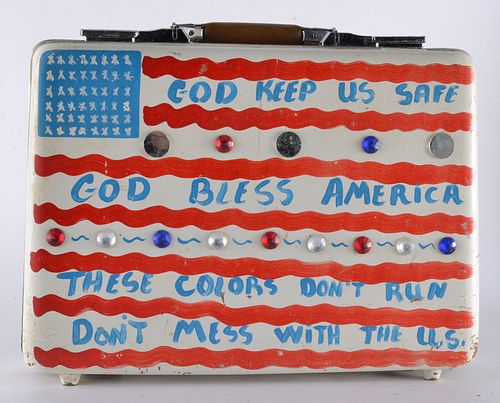 GOD KEEP US SAFE
GOD BLESS AMERICA
THESE COLORS DON'T RUN
DON'T MESS WITH THE U.S.